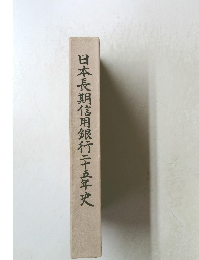 日本長期信用銀行二十五年史